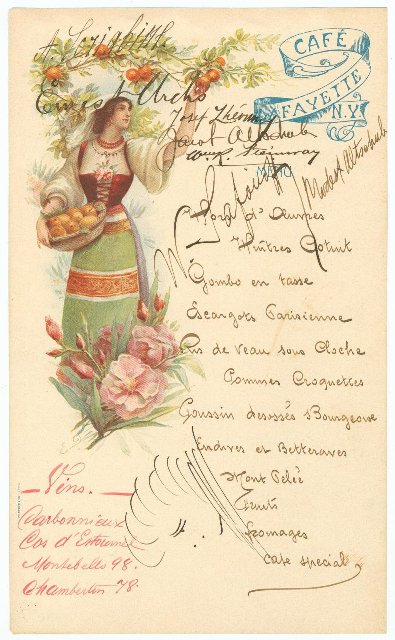 A. Scriabine
CAFÉ
FAYETTE
N.Y.
Ernest Urchs
Josef Lhévinne
Jacob Altschuler
Wm R. Steinway
Modest Altschuler
W. Safonoff
MENU
Hors d'Œuvres
Huîtres Cotuit
Gombo en tasse
Escargots Parisienne
Ris de Veau sous Cloche
Pommes Croquettes
Poussin desossés Bourgeoise
Endives et Betteraves
Mont Pelée
Fruits
fromages
cafe special
Vins.
Carbonnieux
Cos d'Estournel
Montebello 98.
Chambertin 78.